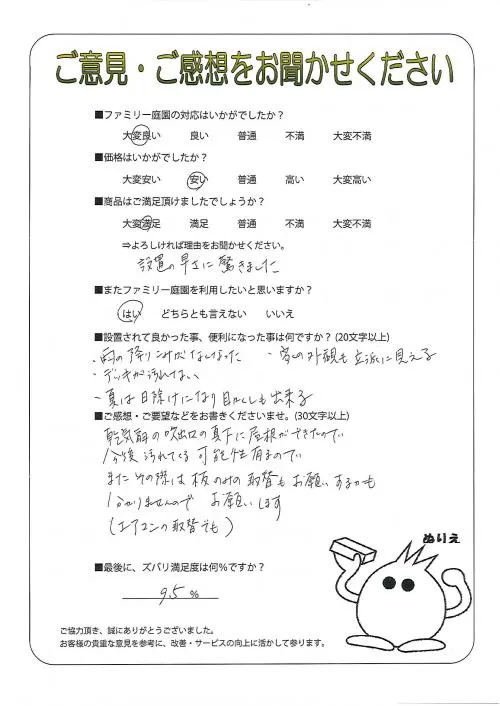 ご意見・ご感想をお聞かせください
■ファミリー庭園の対応はいかがでしたか?
大変良い 良い 普通 不満 大変不満
■価格はいかがでしたか?
大変安い 安い 普通 高い 大変高い
■商品はご満足頂けましたでしょうか?
大変満足 満足 普通 不満 大変不満
⇒よろしければ理由をお聞かせください。
設置の早さに驚きました
■またファミリー庭園を利用したいと思いますか?
はい どちらとも言えない いいえ
■設置されて良かった事、便利になった事は何ですか?(20文字以上)
・雨の降りこみがなくなった ・家の外観も立派に見える
・デッキが汚れない
・夏は日除けになり目かくしも出来る
■ご感想・ご要望などをお書きくださいませ。(30文字以上)
の吹出口の真下に屋根ができたので
今後汚れてくる可能性有るので
またその際は板のみの取替もお願いするかも
分かりませんので お願いします
(エアコンの取替も)
ぬりえ
■最後に、ズバリ満足度は何%ですか?
95 %
ご協力頂き、誠にありがとうございました。
お客様の貴重な意見を参考に、改善・サービスの向上に活かして参ります。